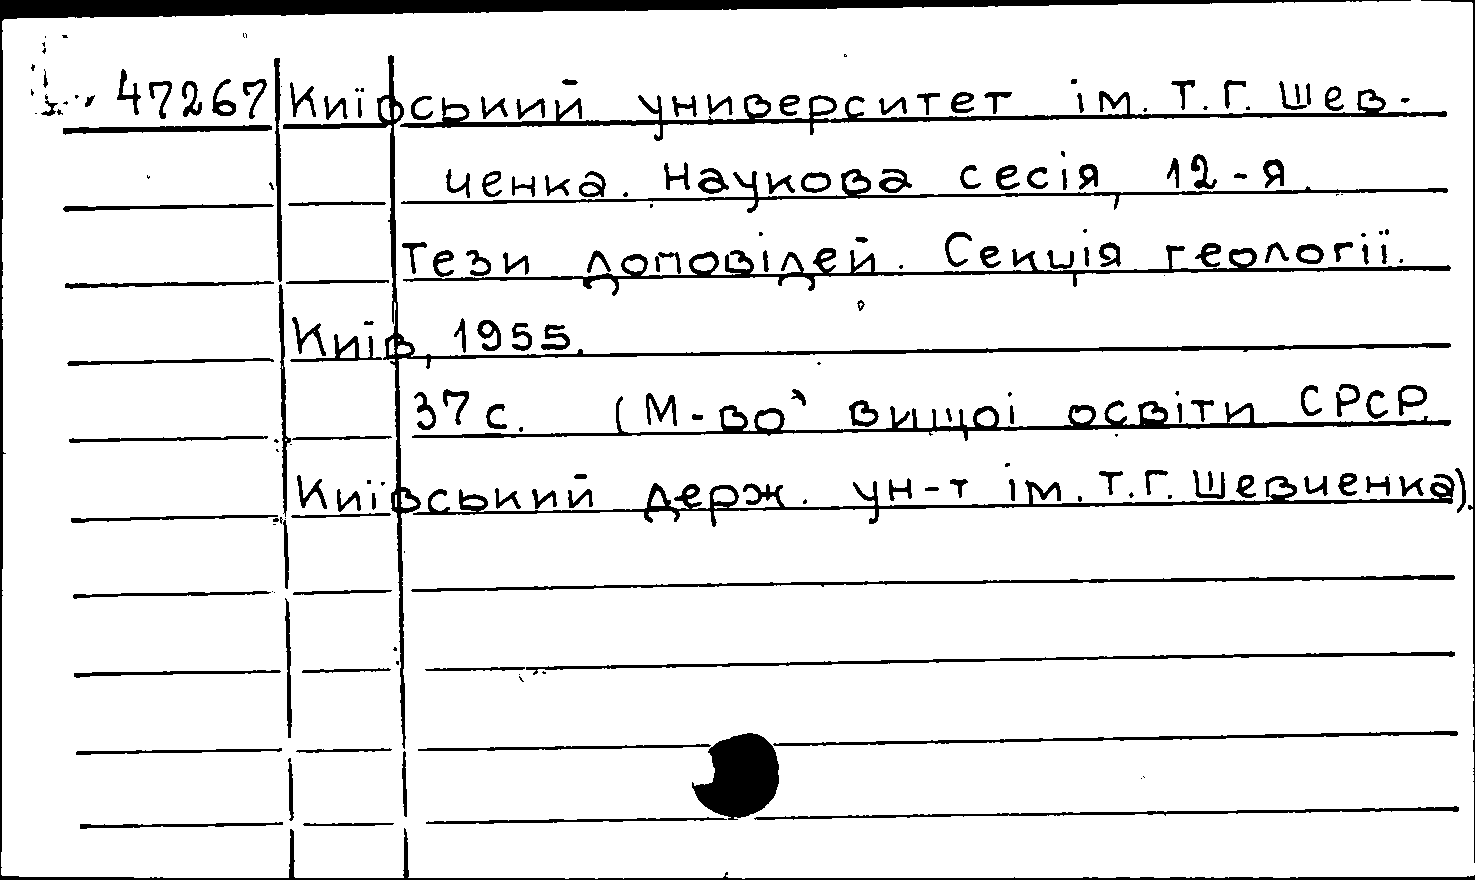 47267 Київський университет ім. Т.Г. Шев-
ченка. Наукова сесія, 12-я.
Тези доповідей. Секція геології.
Київ, 1955.
37 с. (М-во вищоі освіти СРСР.
Київський держ. ун-т ім. Т.Г. Шевченка).